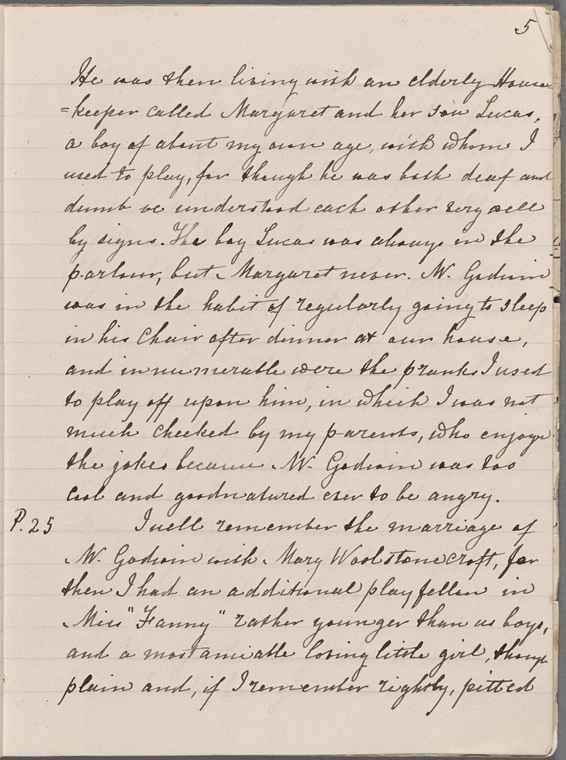 5
He was then living with an elderly House
=keeper called Margaret and her son Lucas,
a boy of about my own age, with whom I
used to play, for though he was both deaf and
dumb we understood each other very well
by signs. The boy Lucas was always in the
parlour, but Margaret never. Mr. Godwin
was in the habit of regularly going to sleep
in his Chair after dinner at our house,
and innumerable were the pranks I used
to play off upon him, in which I was not
much checked by my parents, who enjoye
the jokes because Mr. Godwin was too
cool and goodnatured ever to be angry.
P. 25 I well remember the marriage of
Mr. Godwin with Mary Woolstonecroft, for
then I had an additional playfellow in
Miss "Fanny" rather younger than us boys,
and a most amiable loving little girl, though
plain and, if I remember rightly, pitted